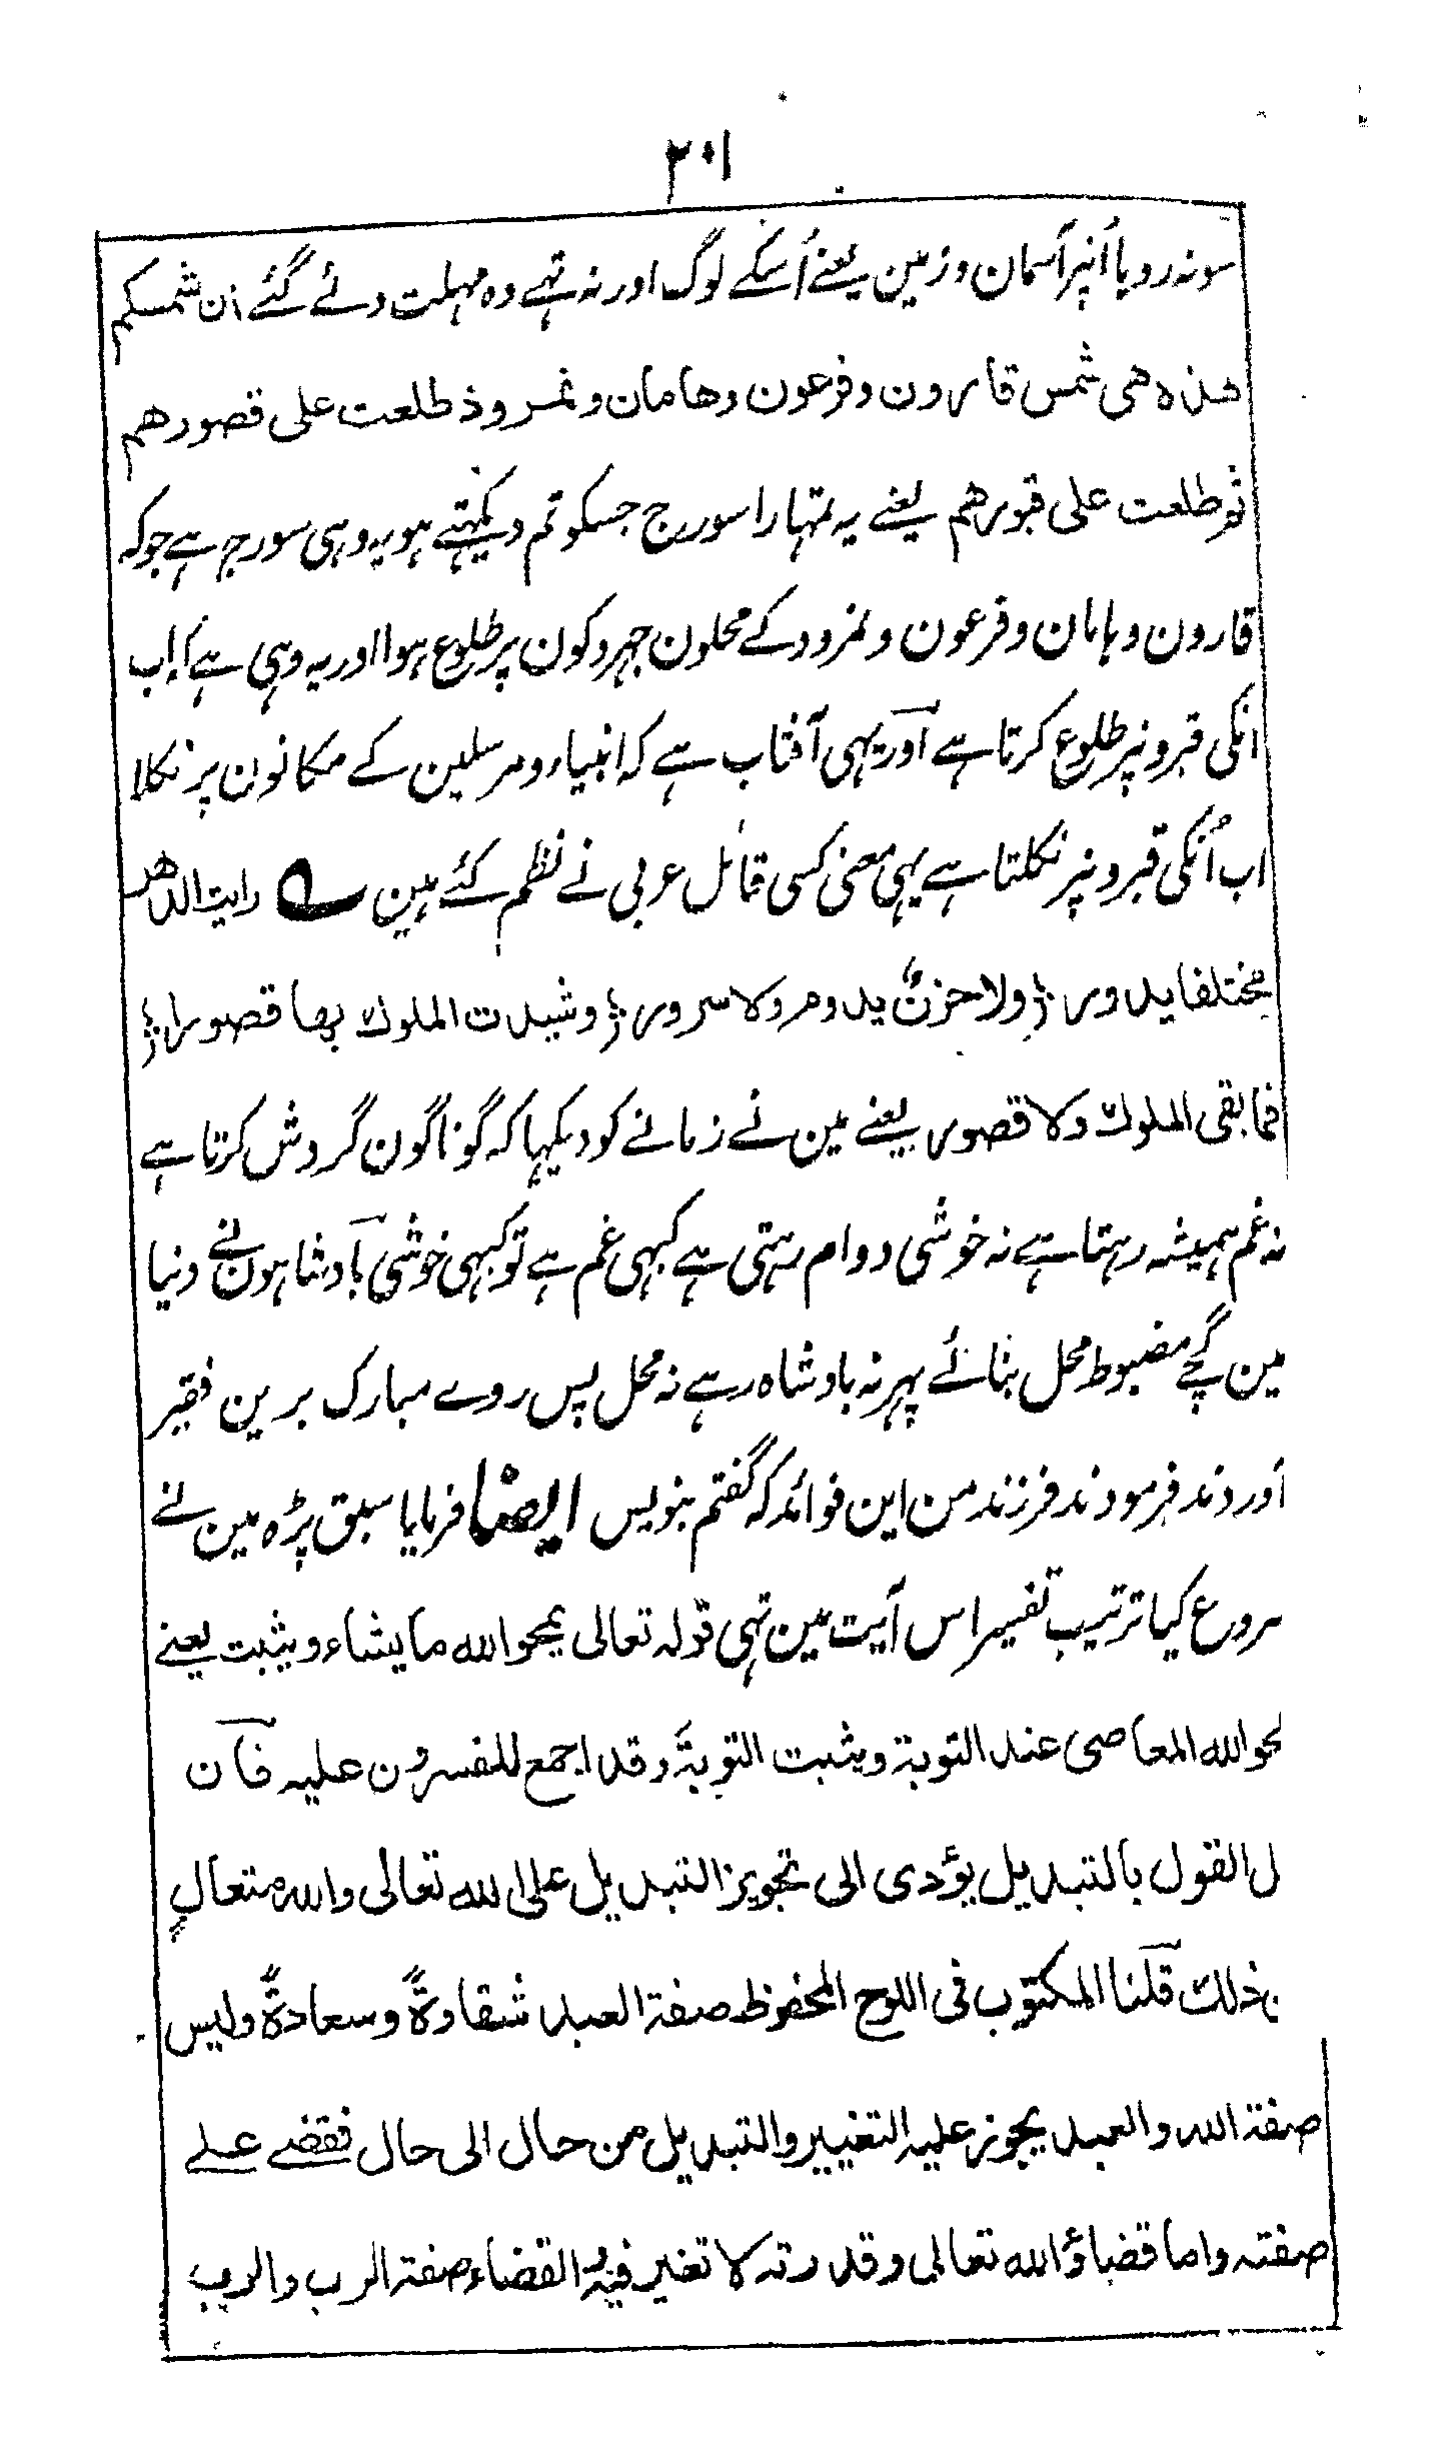 ۲۰۱
سو نہ رویا اُنپر آسمان و زمین یعنے اُسکے لوگ اور نہ تہے وہ مہلت دئے گئے ان شمسکم
هذه هی شمس قارون وفرعون وهامان ونمروذ طلعت علی قصورهم
ثم طلعت علی قبورهم یعنے یہ تمہارا سورج جسکو تم دیکہتے ہو یہ وہی سورج ہے جو کہ
قارون و ہامان و فرعون و نمرود کے محلون جہروکون پر طلوع ہوا اور یہ وہی ہے کہ اب
انکی قبرونپر طلوع کرتا ہے اَور یہی آفتاب ہے کہ انبیاء و مرسلین کے مکانون پر نکلا
اب اُنکی قبرونپر نکلتا ہے یہی معنی کسی قائل عربی نے نظم کئے ہین ؎ رایت الدهر
مختلفا یدور ؛ ولا حزنٌ یدوم ولا سرور ؛ وشیدت الملوك بها قصورا ؛
فما بقی الملوك ولا قصور یعنے مین نے زمانے کو دیکہا کہ گوناگون گردش کرتا ہے
نہ غم ہمیشہ رہتا ہے نہ خوشی دوام رہتی ہے کبہی غم ہے تو کبہی خوشی بادشاہون نے دنیا
مین گچے مضبوط محل بنائے پہر نہ بادشاہ رہے نہ محل پس روے مبارک برین فقیر
آوردند فرمودند فرزند من این فوائد کہ گفتم بنویس ایضا فرمایا سبق پڑہ مین نے
سروع کیا ترتیب تفسیر اس آیت مین تہی قولہ تعالی یمحو الله ما یشاء ویثبت یعنے
لحو الله المعاصی عند التوبة ویثبت التوبةَ وقد اجمع المفسرون علیه فآن
ل القول بالتبدیل یؤدی الی تجویز التبدیل علی الله تعالی والله متعالٍ
ن ذلك قلنا المکتوب فی اللوح المحفوظ صفة العبد شقاوةً وسعادةً ولیس
صفة الله والعبد یجوز علیه التغییر والتبدیل من حال الی حال فقضے علے
صفته واما قضاؤ الله تعالی وقدرته لا تغیر فیه القضاء صفة الرب والرب